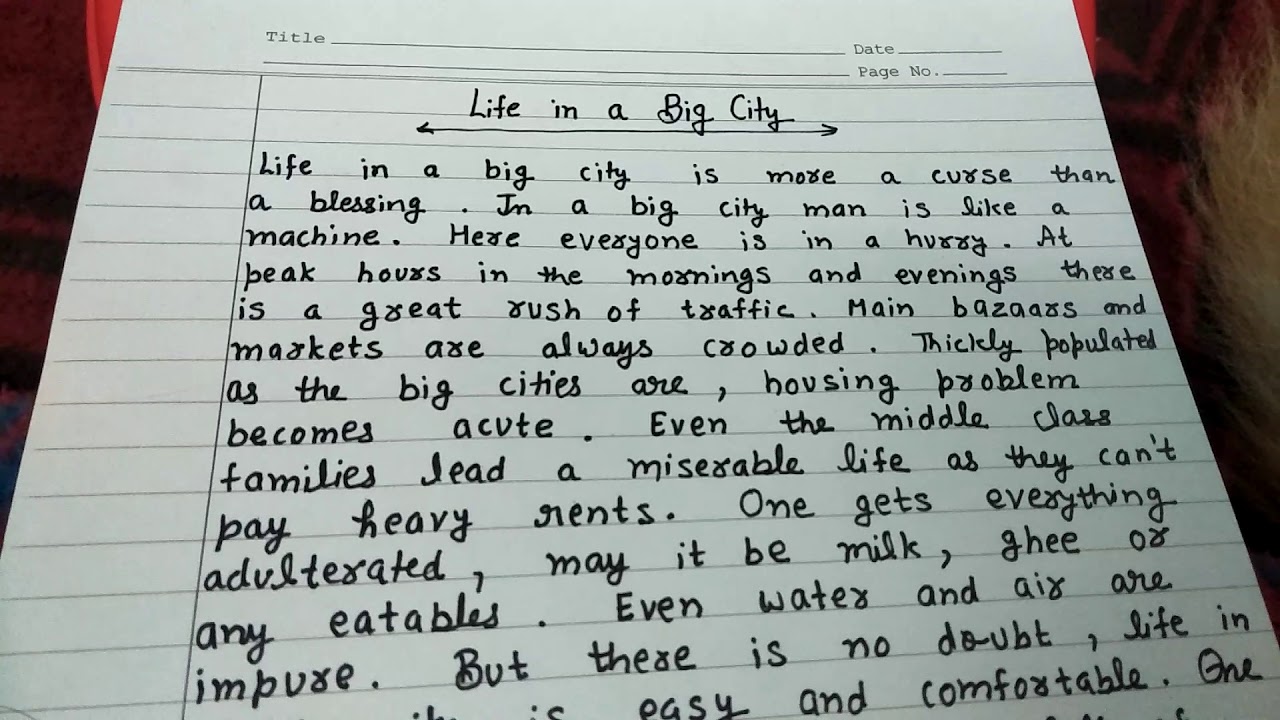 Title
Date
Page No.
Life in a Big City
Life in a big city is more a curse than
a blessing. In a big city man is like a
machine. Here everyone is in a hurry. At
peak hours in the mornings and evenings there
is a great rush of traffic. Main bazaars and
markets are always crowded. Thickly populated
as the big cities are, housing problem
becomes acute. Even the middle class
families lead a miserable life as they can't
pay heavy rents. One gets everything
adulterated, may it be milk, ghee or
any eatables. Even water and air are
impure. But there is no doubt, life in
is easy and comfortable. One